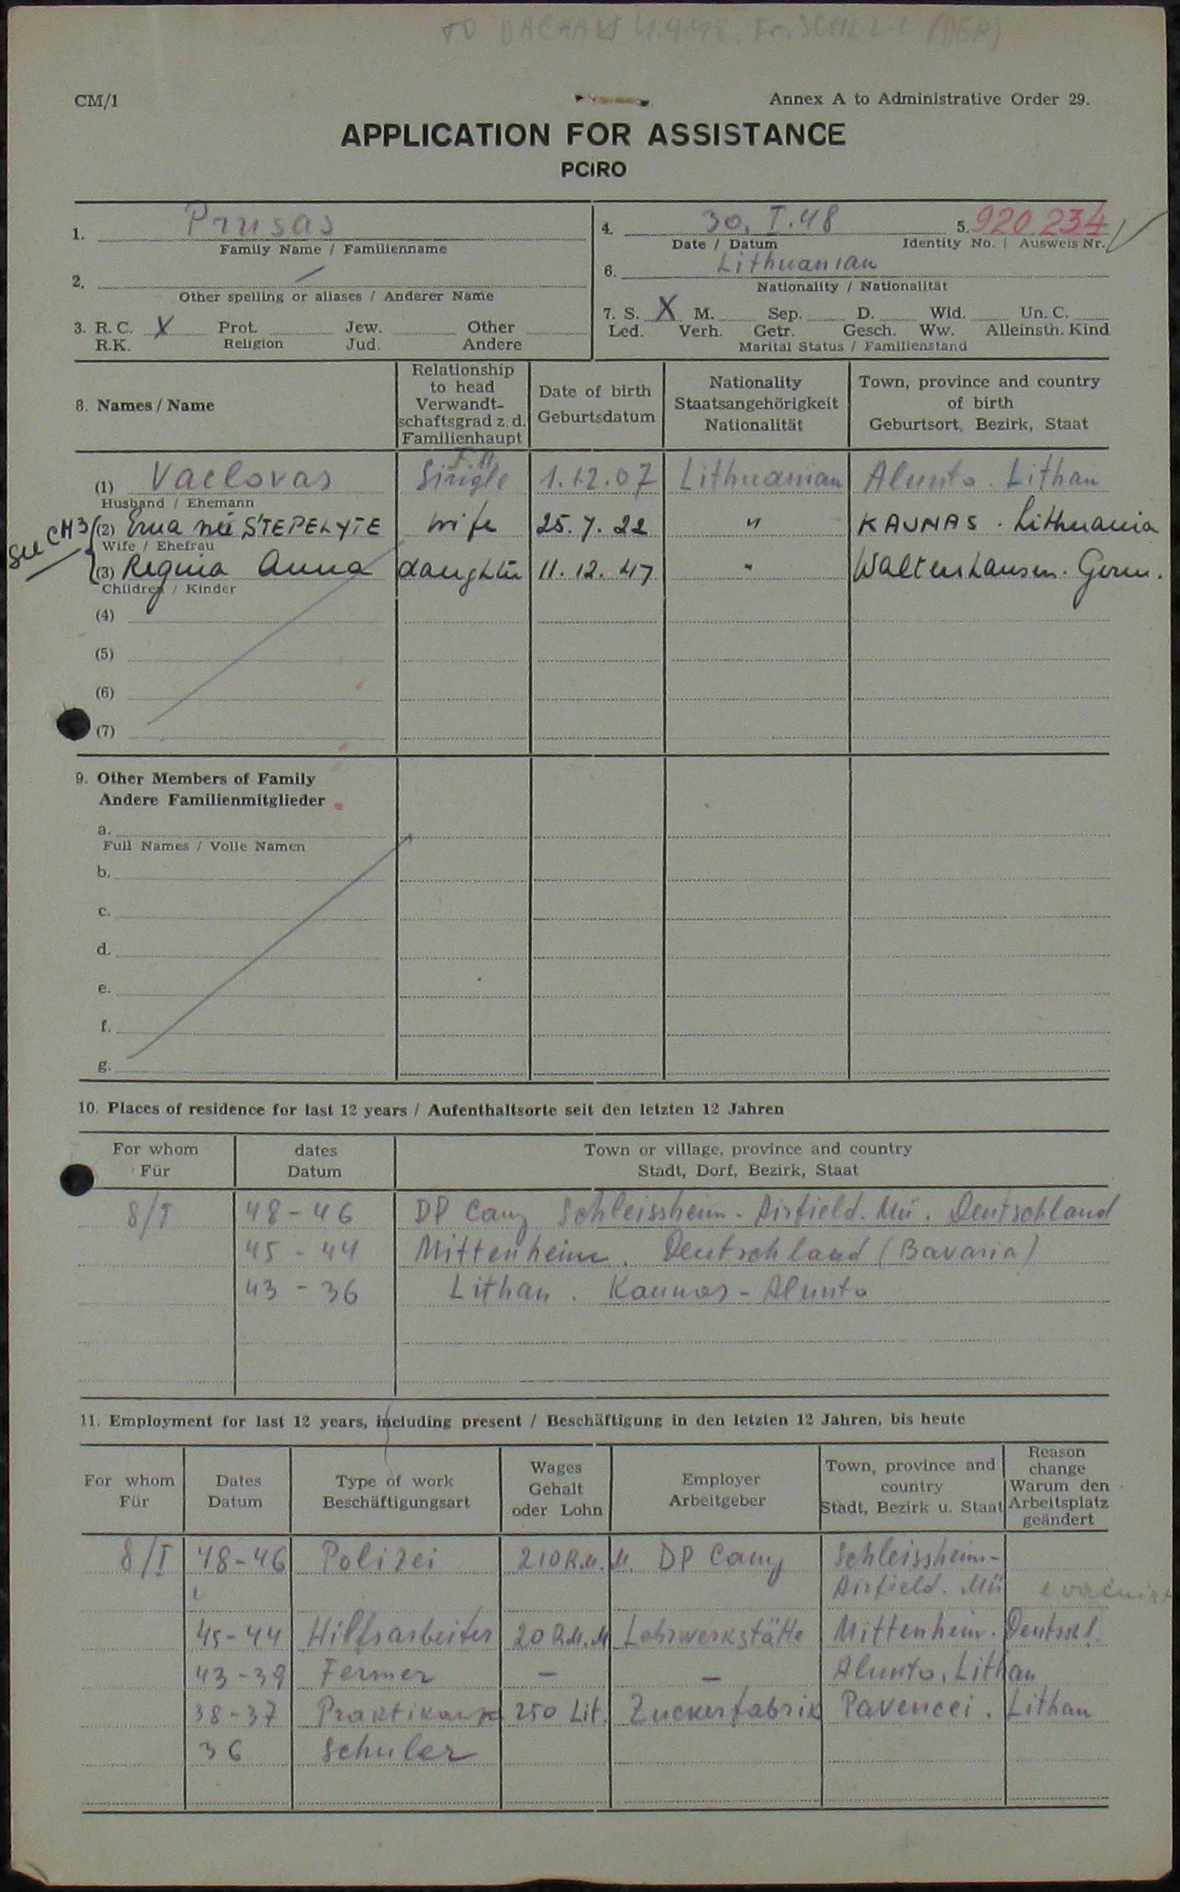 TO DACHAU
CM/1 Annex A to Administrative Order 29.
APPLICATION FOR ASSISTANCE
PCIRO
1. Prusas
Family Name / Familienname
2. /
Other spelling or aliases / Anderer Name
3. R. C. X Prot. Jew. Other
R.K. Religion Jud. Andere
4. 30. I. 48 5. 920.234
Date / Datum Identity No. / Ausweis Nr.
6. Lithuanian
Nationality / Nationalität
7. S. X M. Sep. D. Wid. Un. C.
Led. Verh. Getr. Gesch. Ww. Alleinsth. Kind
Marital Status / Familienstand
8. Names / Name
Relationship to head Verwandt-schaftsgrad z. d. Familienhaupt
Date of birth Geburtsdatum
Nationality Staatsangehörigkeit Nationalität
Town, province and country of birth Geburtsort, Bezirk, Staat
(1) Vaclovas Single 1.12.07 Lithuanian Alunta. Lithan
Husband / Ehemann
See CM3 (2) Erna née STEPELYTE wife 25. 7. 22 " KAUNAS. Lithuania
Wife / Ehefrau
(3) Regina Anna daughter 11. 12. 47 " Waltenhausen. Germ.
Children / Kinder
(4)
(5)
(6)
(7)
9. Other Members of Family
Andere Familienmitglieder
a.
Full Names / Volle Namen
b.
c.
d.
e.
f.
g.
10. Places of residence for last 12 years / Aufenthaltsorte seit den letzten 12 Jahren
For whom dates Town or village, province and country
Für Datum Stadt, Dorf, Bezirk, Staat
8/I 48-46 DP Camp Schleissheim-Airfield. Mü. Deutschland
45-44 Mittenheim. Deutschland (Bavaria)
43-36 Lithan. Kaunas-Alunta
11. Employment for last 12 years, including present / Beschäftigung in den letzten 12 Jahren, bis heute
For whom Für
Dates Datum
Type of work Beschäftigungsart
Wages Gehalt oder Lohn
Employer Arbeitgeber
Town, province and country Stadt, Bezirk u. Staat
Reason change Warum den Arbeitsplatz geändert
8/I 48-46 Polizei 210 R.M. M. DP Camp Schleissheim-
Airfield. Mü
45-44 Hilfsarbeiter 20 R.M. M Lehrwerkstätte Mittenheim. Deutschl.
43-39 Fermer — — Alunta. Lithan
38-37 Praktikant 250 Lit. Zuckerfabrik Pavencei. Lithan
36 Schuler